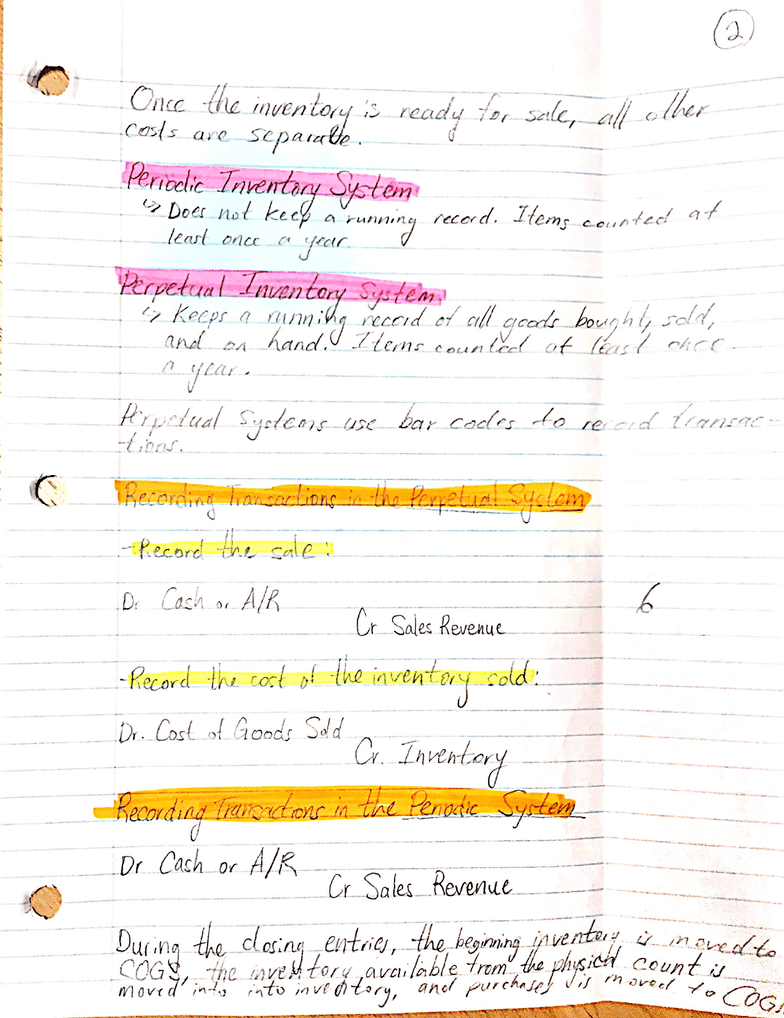 2
Once the inventory is ready for sale, all other
costs are separate.
Periodic Inventory System
↳ Does not keep a running record. Items counted at
least once a year.
Perpetual Inventory System
↳ Keeps a running record of all goods bought, sold,
and on hand. Items counted at least once
a year.
Perpetual Systems use bar codes to record transac-
-tions.
Recording Transactions in the Perpetual System
-Record the sale:
Dr Cash or A/R
6
Cr Sales Revenue
-Record the cost of the inventory sold:
Dr. Cost of Goods Sold
Cr. Inventory
Recording Transactions in the Periodic System
Dr Cash or A/R
Cr Sales Revenue
During the closing entries, the beginning inventory is moved to
COGS, the inventory available from the physical count is
moved into into inventory, and purchases is moved to COGS